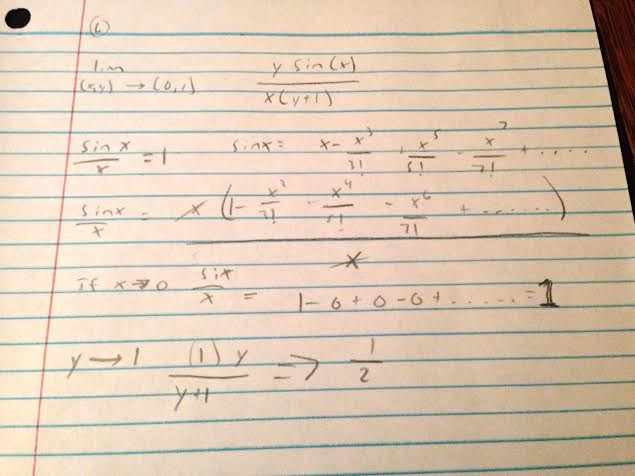 (c)
lim (x,y) → (0,1) y sin(x) / x(y+1)
sin x / x = 1 sinx = x - x^3/3! + x^5/5! - x^7/7! + ....
sinx / x = x (1 - x^2/3! - x^4/5! - x^6/7! + .......) / x
If x → 0 six/x = 1 - 0 + 0 - 0 + ...... = 1
y → 1 (1) y / y+1 => 1/2